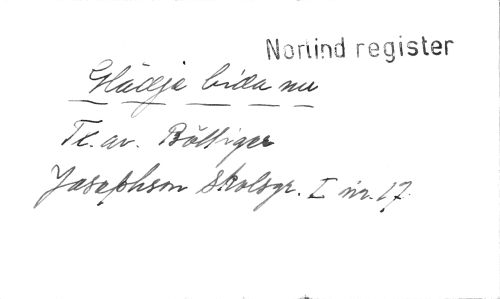 Norlind register
Glädje bida nu
Tx. av. Böttiger
Josephson Skolsgr. I nr. 17.